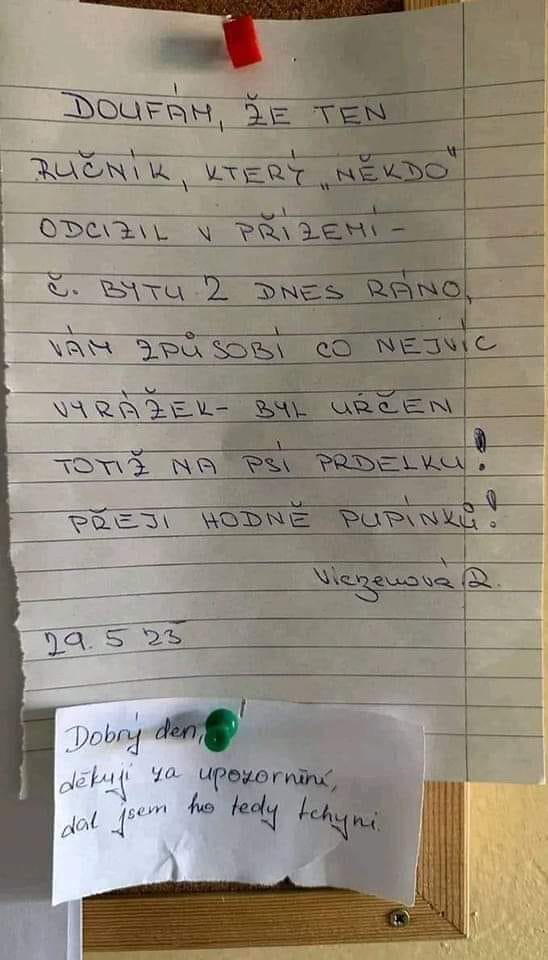 DOUFÁM, ŽE TEN
RUČNÍK, KTERÝ „NĚKDO"
ODCIZIL V PŘÍZEMÍ -
Č. BYTU 2 DNES RÁNO,
VÁM ZPŮSOBÍ CO NEJVÍC
VYRÁŽEK - BYL URČEN
TOTIŽ NA PSÍ PRDELKU!
PŘEJI HODNĚ PUPÍNKŮ!
29. 5 23
Dobrý den,
děkuji za upozornění,
dal jsem ho tedy tchyni.